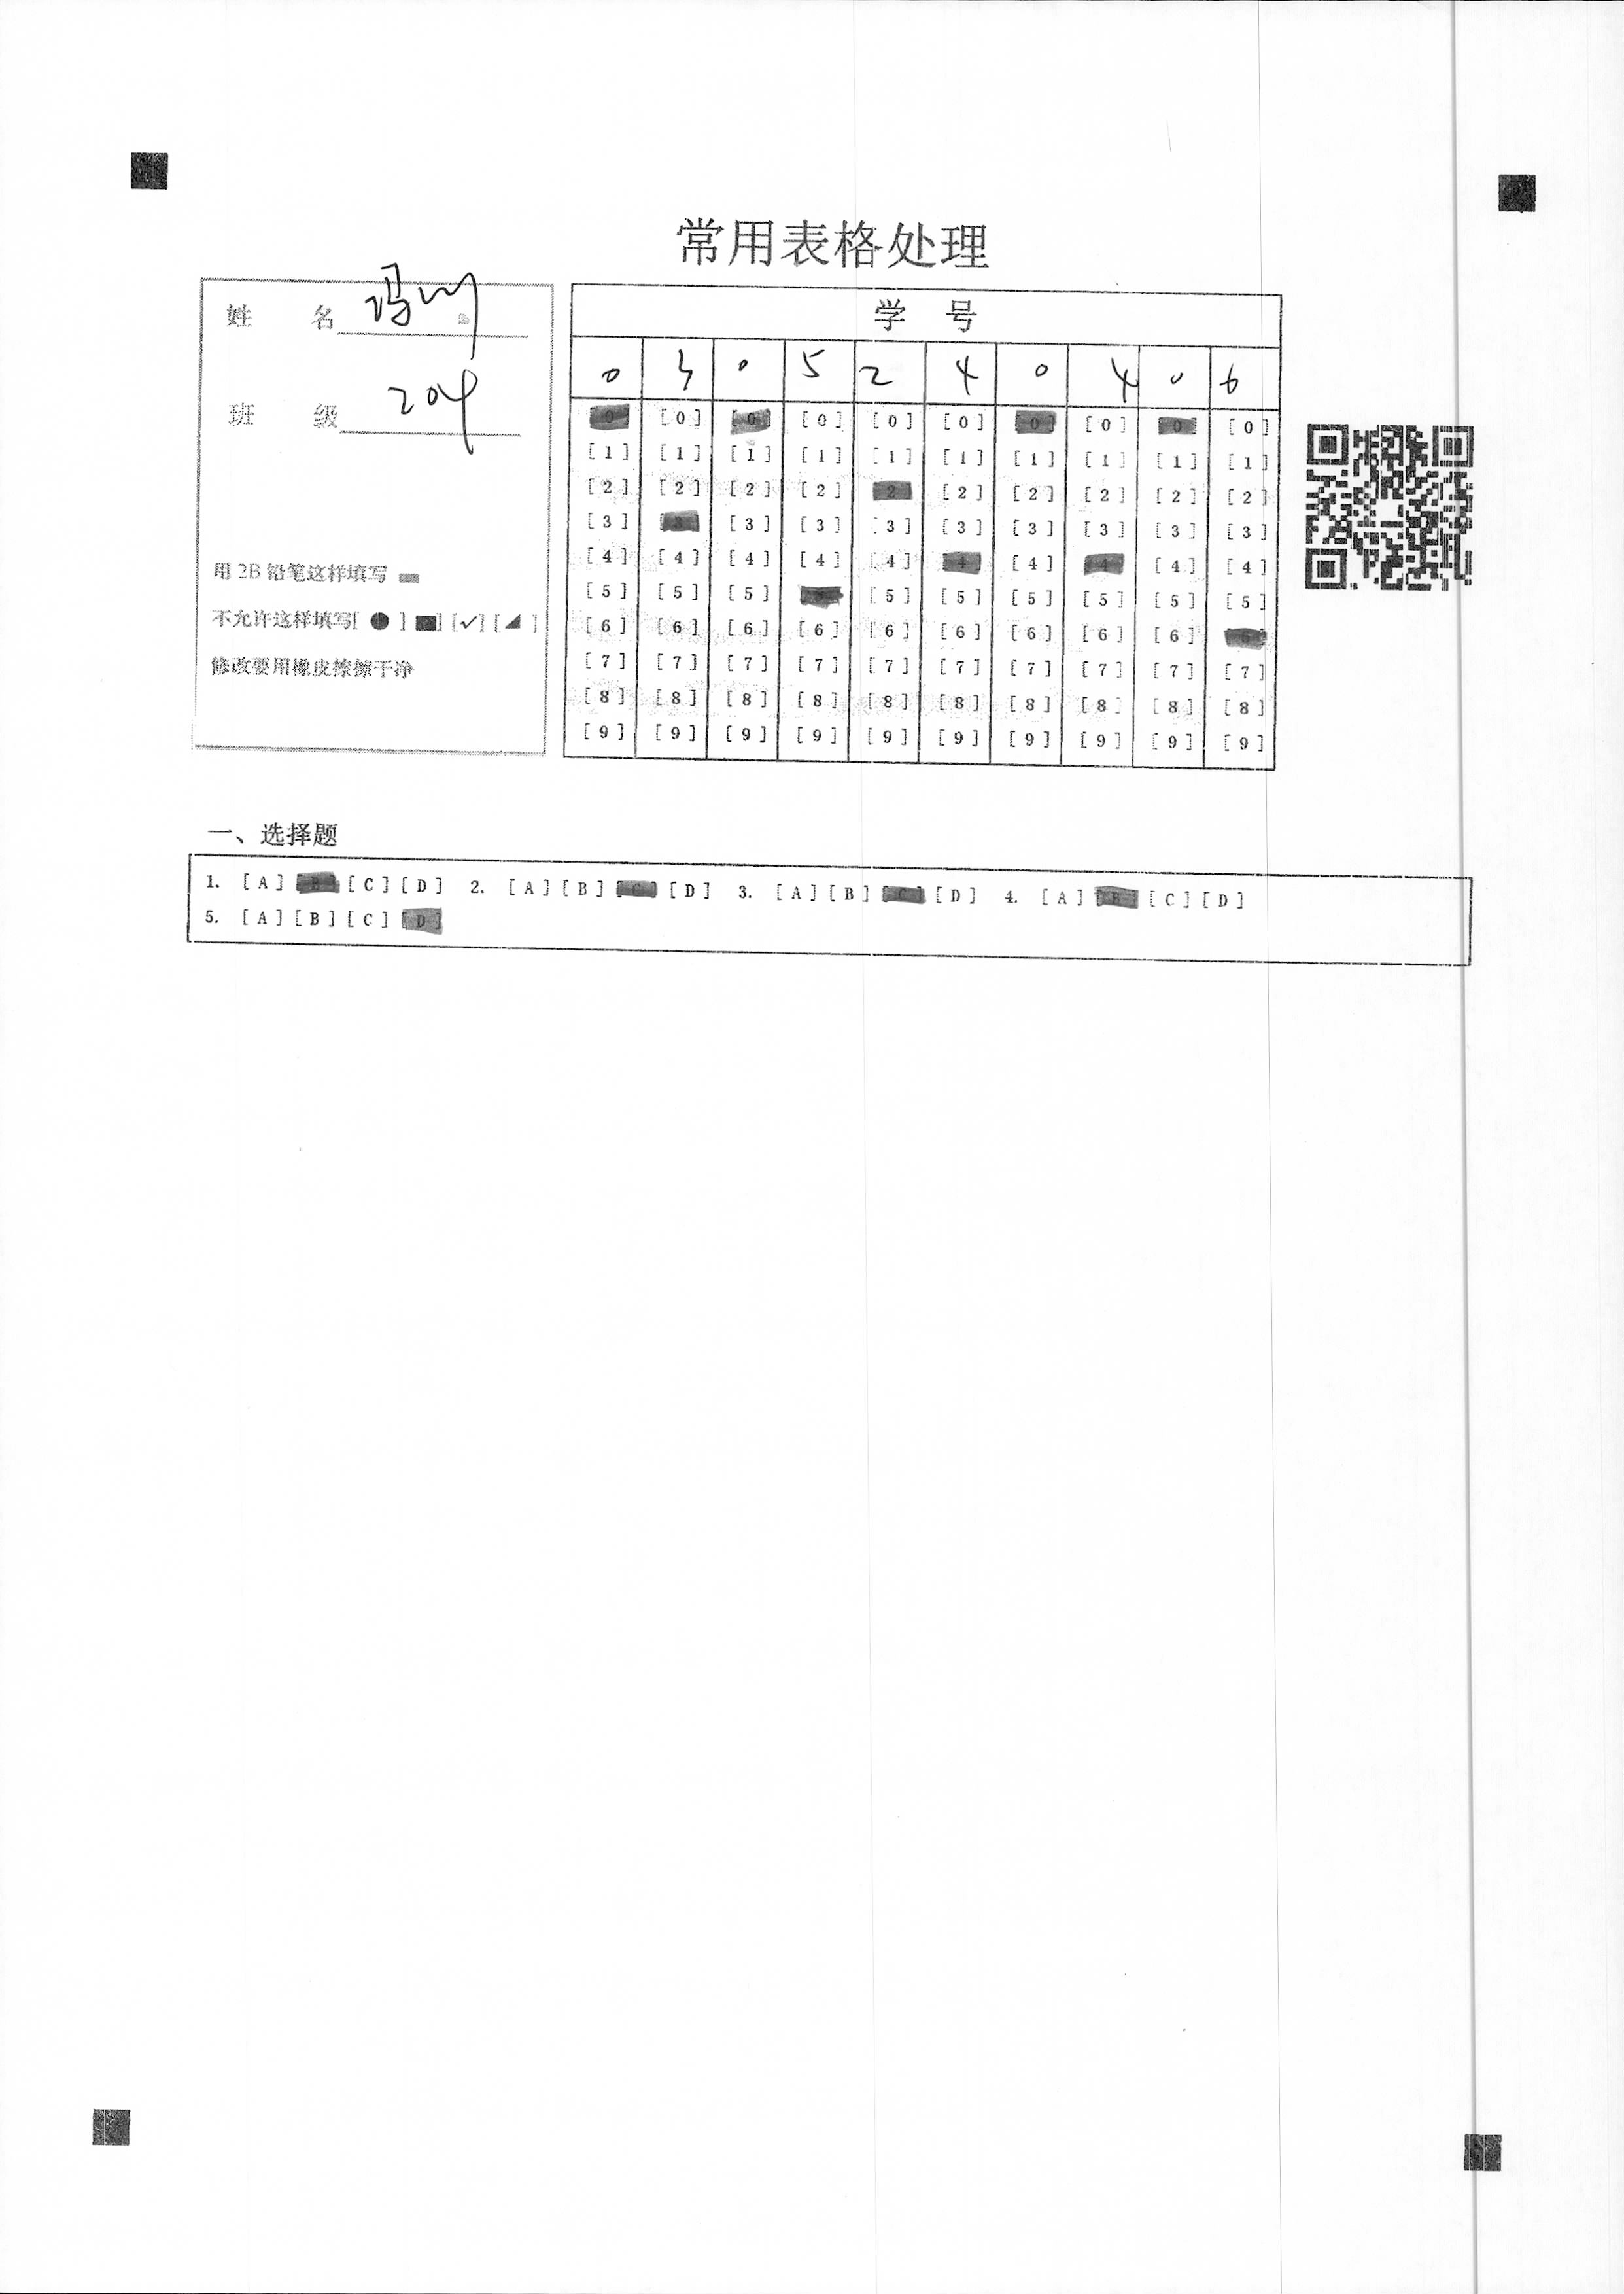 常用表格处理
姓 名 冯
班 级 204
用 2B 铅笔这样填写
不允许这样填写[ ● ] ■] [✓] [◢ ]
修改要用橡皮擦擦干净
学 号
0 3 0 5 2 4 0 4 0 6
[0] [0] [0] [0] [0] [0] [0] [0] [0] [0]
[1] [1] [1] [1] [1] [1] [1] [1] [1] [1]
[2] [2] [2] [2] [2] [2] [2] [2] [2] [2]
[3] [3] [3] [3] [3] [3] [3] [3] [3] [3]
[4] [4] [4] [4] [4] [4] [4] [4] [4] [4]
[5] [5] [5] [5] [5] [5] [5] [5] [5] [5]
[6] [6] [6] [6] [6] [6] [6] [6] [6] [6]
[7] [7] [7] [7] [7] [7] [7] [7] [7] [7]
[8] [8] [8] [8] [8] [8] [8] [8] [8] [8]
[9] [9] [9] [9] [9] [9] [9] [9] [9] [9]
一、选择题
1. [A] [B] [C] [D] 2. [A] [B] [C] [D] 3. [A] [B] [C] [D] 4. [A] [B] [C] [D]
5. [A] [B] [C] [D]